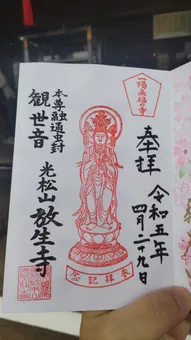 奉拝
令和五年
四月二十九日
一陽来福之寺
本尊融通虫封
観世音
光松山放生寺
参拝記念